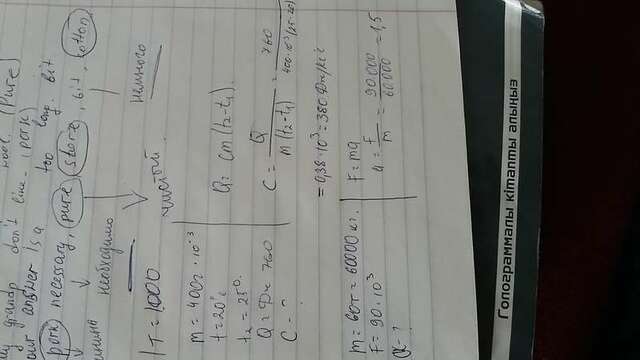 my grandp don't line - (pork)
our answer is a too long. bit
pork necessary, pure store, bit, cotton
необходимо чистый немного
1T = 1000
m = 400г · 10⁻³
t = 20°c
t₂ = 25°.
Q = Дж 760
C - ?
Q = cm(t₂-t₁)
C = Q / m(t₂-t₁) = 760 / 400·10⁻³(25-20)
= 0,38·10³ = 380 Дж/кг°c
m = 60т = 60000 кг.
F = 90·10³
a - ?
F = ma
a = F / m = 90000 / 60000 = 1,5
Голограммалы кітапты алыңыз